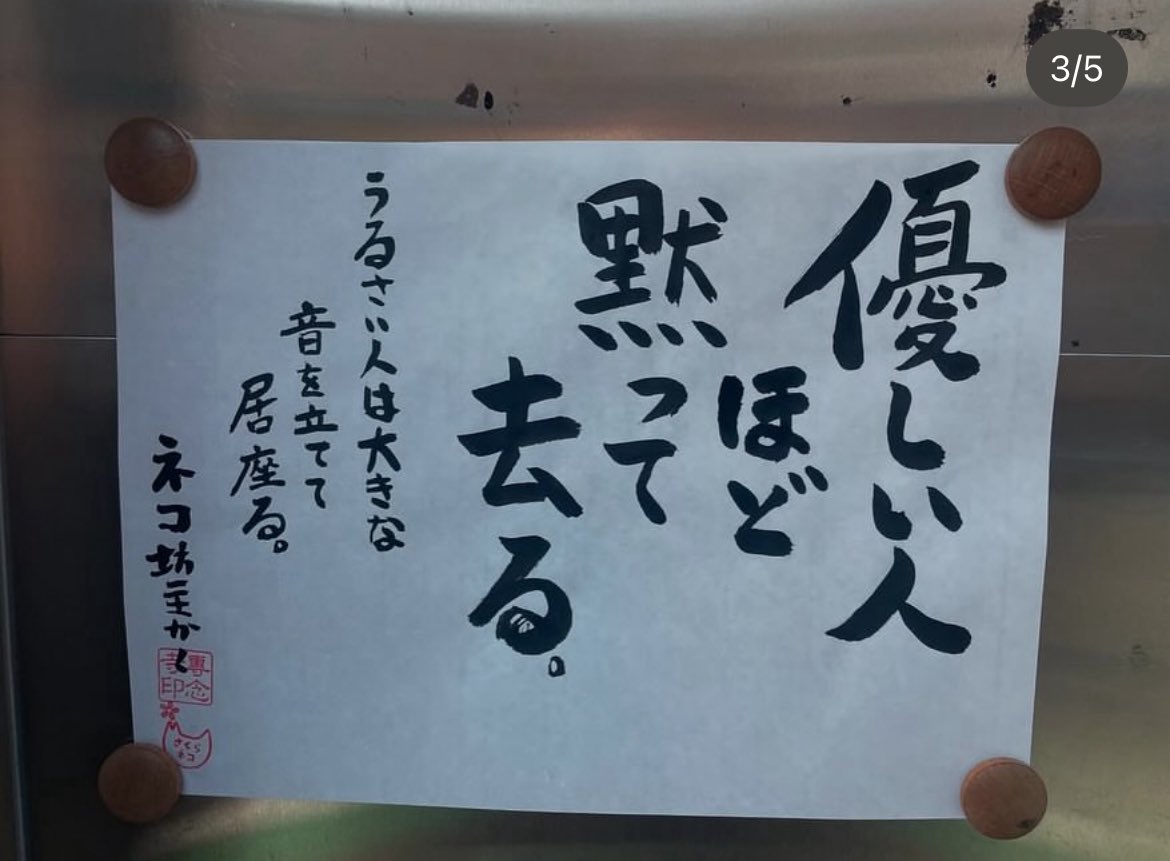 3/5
優しい人
ほど
黙って
去る。
うるさい人は大きな
音を立てて
居座る。
ネコ坊主かく
専念
寺印
さくら
ネコ